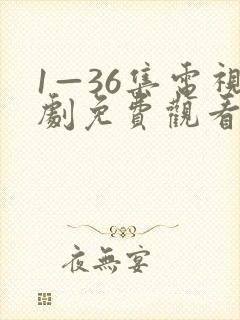 1—36集電視
劇免費觀看
夜無宴